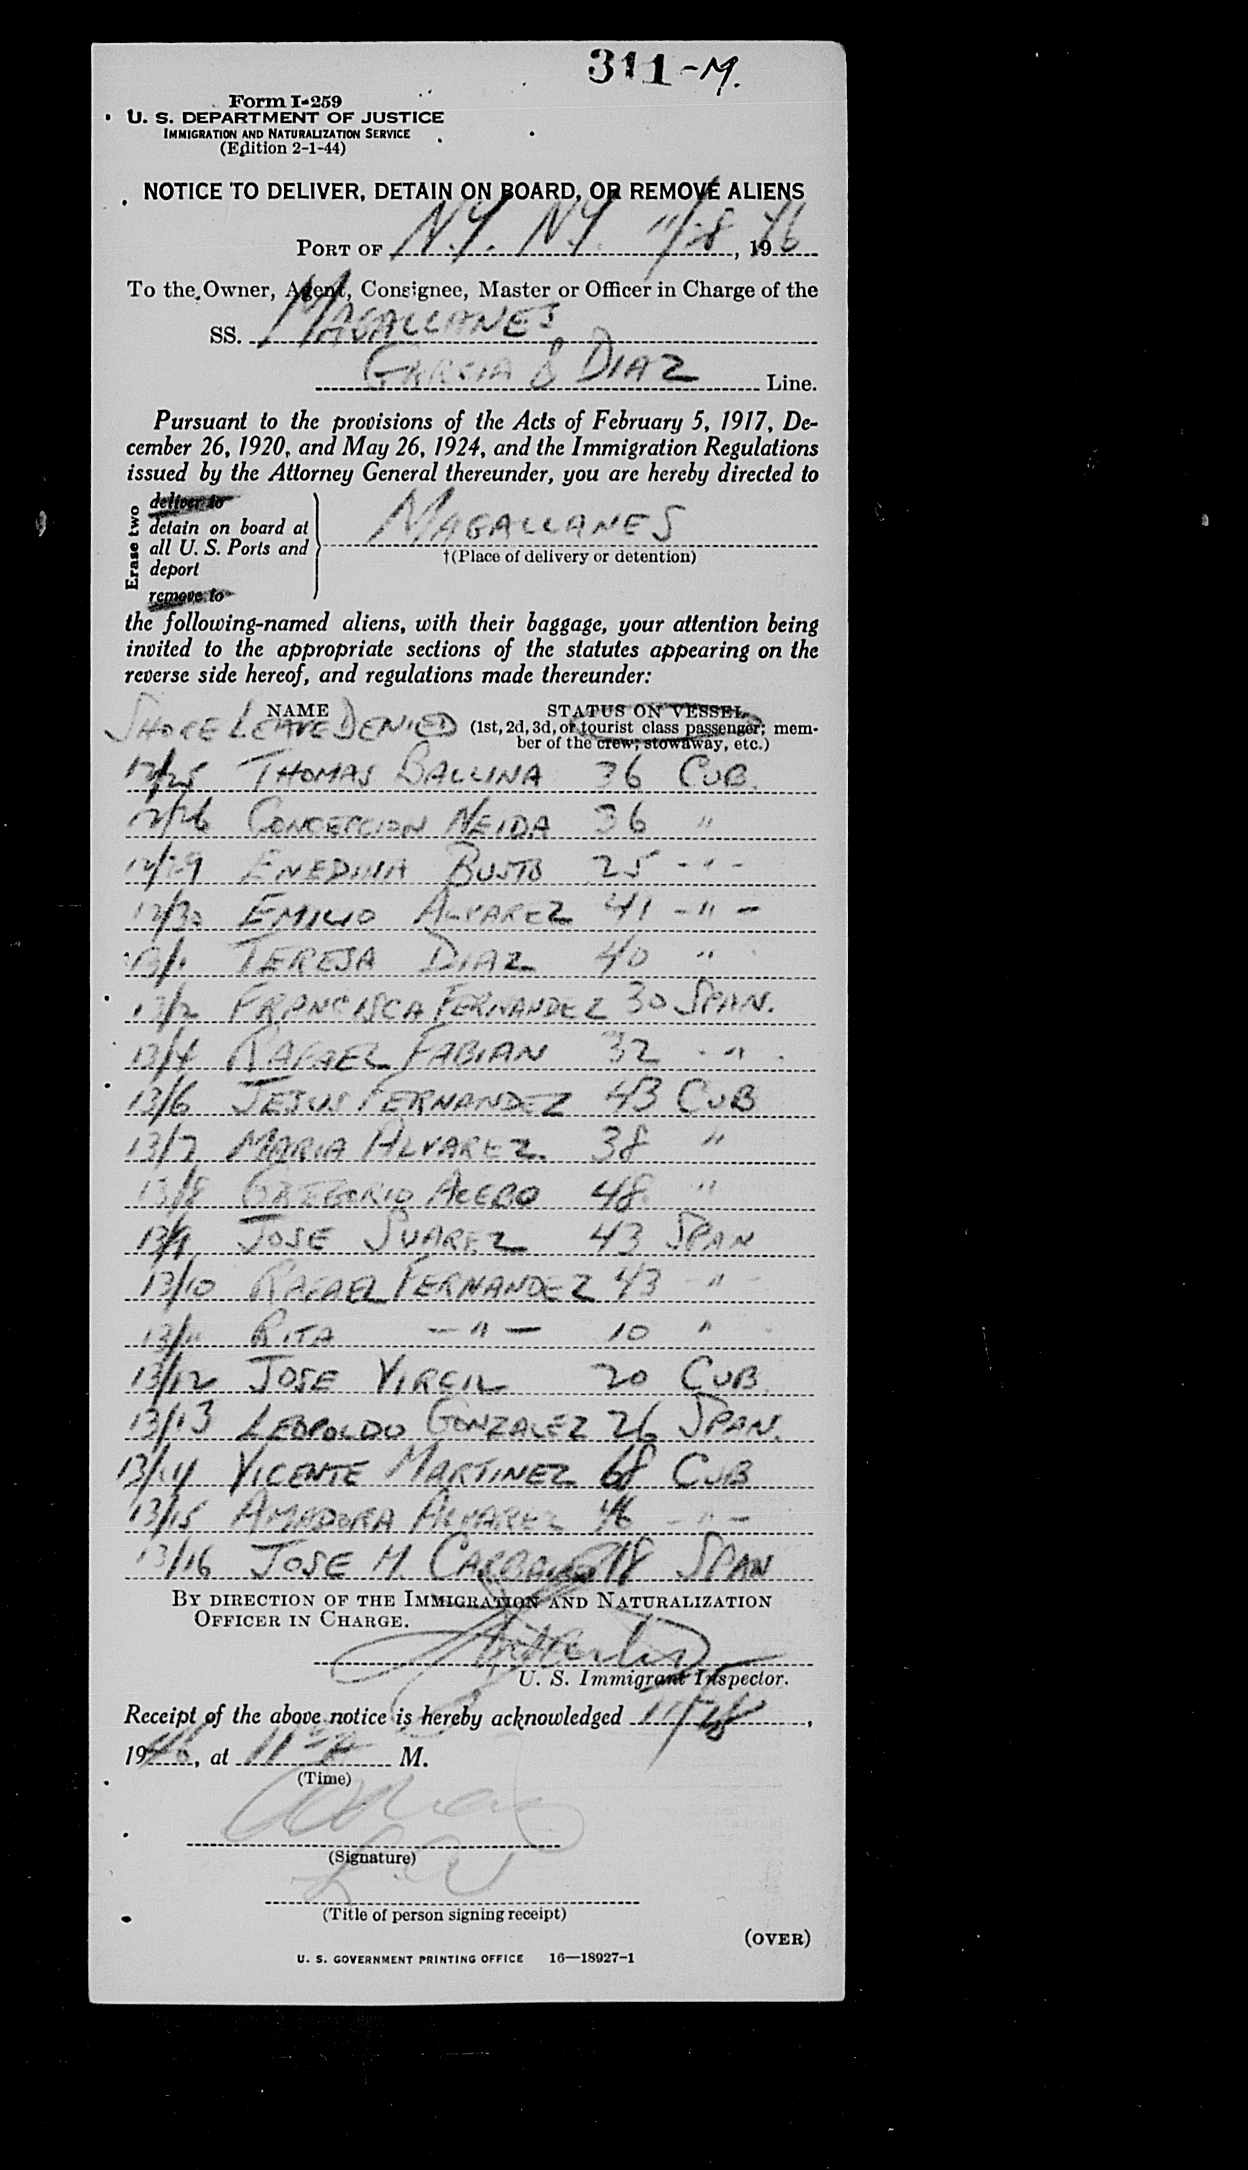 311-M.
Form I-259
U. S. DEPARTMENT OF JUSTICE
IMMIGRATION AND NATURALIZATION SERVICE
(Edition 2-1-44)
NOTICE TO DELIVER, DETAIN ON BOARD, OR REMOVE ALIENS
PORT OF N.Y. N.Y. 11/28, 1946
To the Owner, Agent, Consignee, Master or Officer in Charge of the
SS. MAGALLANES
GARCIA & DIAZ Line.
Pursuant to the provisions of the Acts of February 5, 1917, De-
cember 26, 1920, and May 26, 1924, and the Immigration Regulations
issued by the Attorney General thereunder, you are hereby directed to
Erase two
deliver to
detain on board at
all U. S. Ports and
deport
remove to
MAGALLANES
†(Place of delivery or detention)
the following-named aliens, with their baggage, your attention being
invited to the appropriate sections of the statutes appearing on the
reverse side hereof, and regulations made thereunder:
NAME STATUS ON VESSEL
SHORE LEAVE DENIED (1st, 2d, 3d, or tourist class passenger; mem-
ber of the crew; stowaway, etc.)
12/25 THOMAS BALLINA 36 CUB.
12/26 CONCEPCION NEIDA 36 "
12/29 ENEDINA BUSTO 25 - " -
12/30 EMILIO ALVAREZ 41 - " -
13/1 TERESA DIAZ 40 "
13/2 FRANCISCA FERNANDEZ 30 SPAN.
13/4 RAFAEL FABIAN 32 - " -
13/6 JESUS FERNANDEZ 43 CUB
13/7 MARIA ALVAREZ 38 "
13/8 GREGORIO ACEBO 48 "
13/9 JOSE SUAREZ 43 SPAN
13/10 RAFAEL FERNANDEZ 43 - " -
13/11 RITA - " - 10 "
13/12 JOSE VIRGIL 20 CUB
13/13 LEOPOLDO GONZALEZ 26 SPAN.
13/14 VICENTE MARTINEZ 68 CUB
13/15 AMADORA ALVAREZ 46 - " -
13/16 JOSE M. 18 SPAN
BY DIRECTION OF THE IMMIGRATION AND NATURALIZATION
OFFICER IN CHARGE.
U. S. Immigrant Inspector.
Receipt of the above notice is hereby acknowledged 11/28,
1946, at M.
(Time)
(Signature)
(Title of person signing receipt)
(OVER)
U. S. GOVERNMENT PRINTING OFFICE 16—18927-1